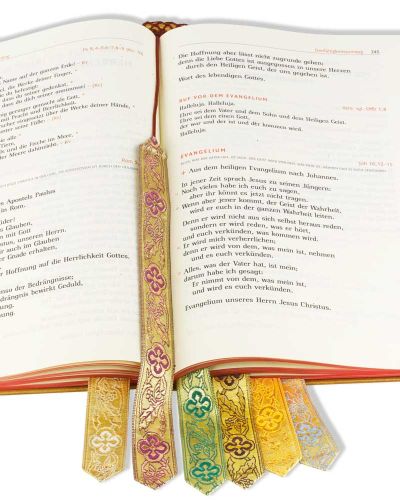 Ps 8,4-5.6-7.8-9
Name auf der ganzen Erde!
Werke deiner Finger,
dass du an ihn denkst,
dass du seiner gedenkst
geringer gemacht als Gott,
mit Pracht und Herrlichkeit.
über die Werke deiner Hände,
unter seine Füße:
und die Fische im Meer,
Meere dahinzieht.
Apostels Paulus
in Rom.
Glauben,
mit Gott
Christus, unseren Herrn.
auch im Glauben
Gnade erhalten,
der Hoffnung auf die Herrlichkeit Gottes.
unso der Bedrängnisse;
Bedrängnis bewirkt Geduld,
Dreifaltigkeitssonntag 245
Die Hoffnung aber lässt nicht zugrunde gehen;
denn die Liebe Gottes ist ausgegossen in unsere Herzen
durch den Heiligen Geist, der uns gegeben ist.
Wort des lebendigen Gottes.
RUF VOR DEM EVANGELIUM
Halleluja. Halleluja.
Ehre sei dem Vater und dem Sohn und dem Heiligen Geist.
Ehre sei dem einen Gott,
der war und der ist und der kommen wird.
Halleluja.
EVANGELIUM
Joh 16,12-15
+ Aus dem heiligen Evangelium nach Johannes.
In jener Zeit sprach Jesus zu seinen Jüngern:
Noch vieles habe ich euch zu sagen,
aber ihr könnt es jetzt nicht tragen.
Wenn aber jener kommt, der Geist der Wahrheit,
wird er euch in der ganzen Wahrheit leiten.
Denn er wird nicht aus sich selbst heraus reden,
sondern er wird reden, was er hört,
und euch verkünden, was kommen wird.
Er wird mich verherrlichen;
denn er wird von dem, was mein ist, nehmen
und es euch verkünden.
Alles, was der Vater hat, ist mein;
darum habe ich gesagt:
Er nimmt von dem, was mein ist,
und wird es euch verkünden.
Evangelium unseres Herrn Jesus Christus.